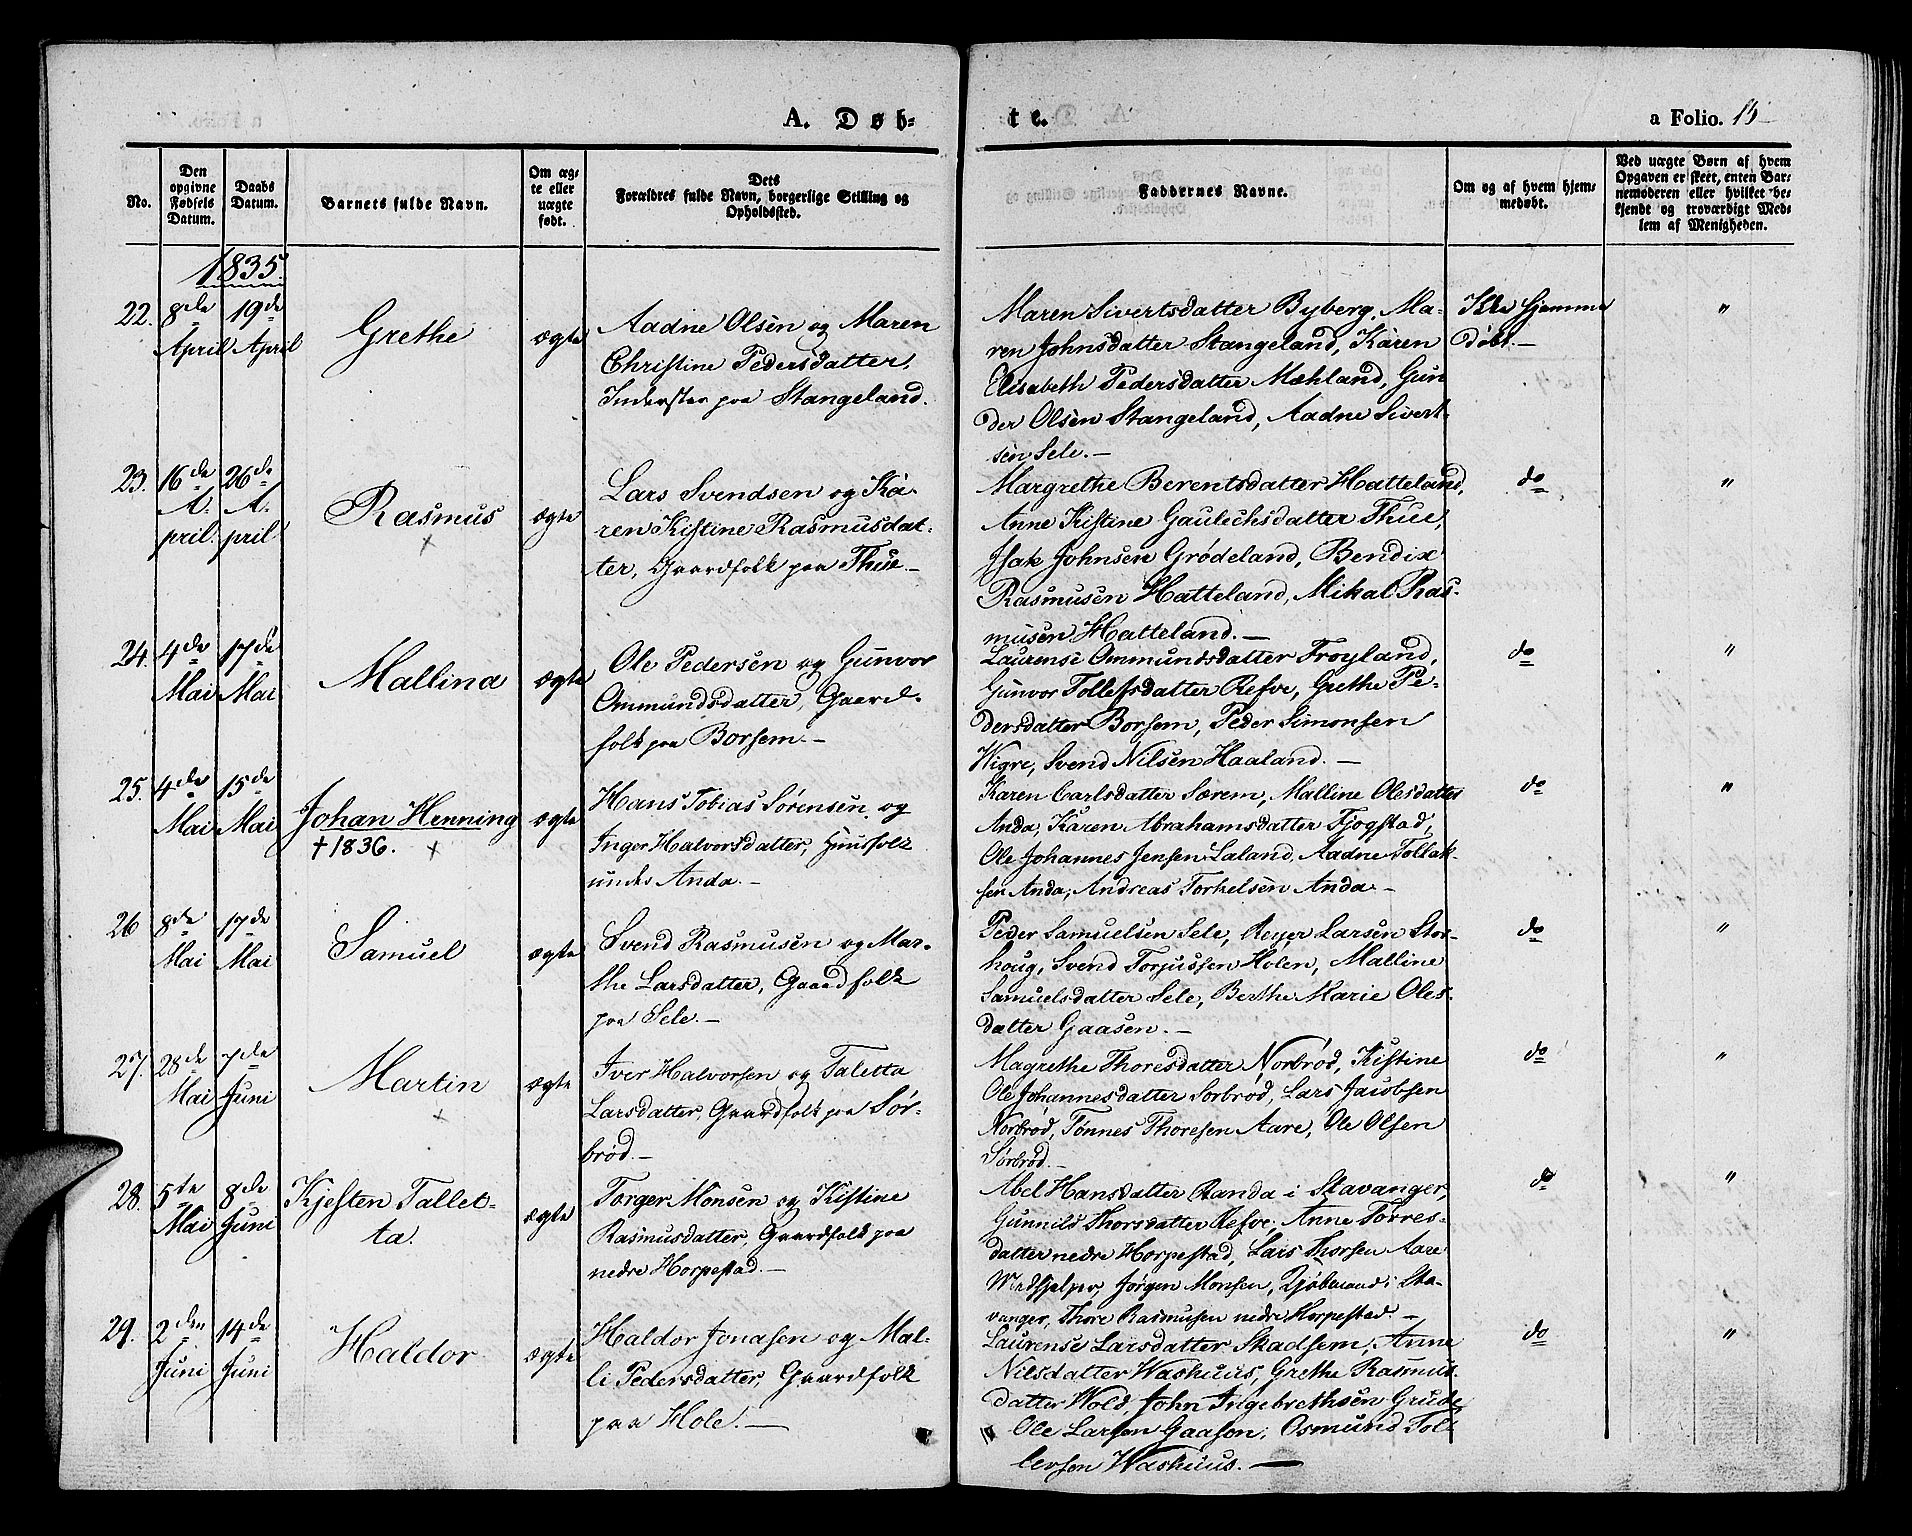 A. Døb-
te.
a Folio. 15
No.
Den opgivne Fødsels Datum.
Daabs Datum.
Barnets fulde Navn.
Om ægte eller uægte født.
Dets
Forældres fulde Navn, borgerlige Stilling og
Opholdssted.
Faddernes Navne.
Om og af hvem hjem-
medøbt.
Ved uægte Børn af hvem
Opgaven er skeet, enten Bar-
nemoderen eller hvilket be-
kjendt og troværdigt Med-
lem af Menigheden.
1835.
22. 8de April 19de April Grethe ægte
Aadne Olsen og Maren
Christine Pedersdatter,
Inderster paa Stangeland.
Maren Sivertsdatter Byberg, Ma-
ren Johnsdatter Stangeland, Karen
Elisabeth Pedersdatter Mæhland, Gun
der Olsen Stangeland, Aadne Sivert-
sen Sele.-
hjemme
døbt.-
"
23. 16de A-pril. 26de A-pril Rasmus ægte
+
Lars Svendsen og Ka-
ren Kistine Rasmusdat-
ter, Gaardfolk paa Thue.-
Margrethe Berentsdatter Hatteland,
Anne Kistine Gaulechsdatter Thue,
Isak Johnsen Grødeland, Bendix
Rasmusen Hatteland, Mikal Ras-
musen Hatteland.-
do
"
24. 4de Mai 17de Mai Mallina ægte
Ole Pedersen og Gunvor
Ommundsdatter, Gaard-
folk paa Borsem.-
Laurense Ommundsdatter Frøyland,
Gunvor Tollefsdatter Refve, Grethe Pe-
dersdatter Borsem, Peder Simonsen
Wigre, Svend Nilsen Haaland.-
do
"
25. 4de Mai 15de Mai Johan Henning ægte
+ 1836. +
Hans Tobias Sørensen og
Inger Halvorsdatter, Huusfolk
under Anda.-
Karen Carlsdatter Særem, Malline Olesdatter
Anda, Karen Abrahamsdatter Fjogstad,
Ole Johannes Jensen Laland, Aadne Tollak-
sen Anda, Andreas Torkelsen Anda-
do
"
26 8de Mai 17de Mai Samuel ægte
Svend Rasmusen og Mar-
the Larsdatter, Gaardfolk
paa Sele.-
Peder Samuelsen Sele, Reyer Larsen Stor-
houg, Svend Torjussen Holen, Malline
Samuelsdatter Sele, Berthe Marie Oles-
datter Gaasen.-
do
"
27. 28de Mai 7de Juni Martin ægte
+
Iver Halvorsen og Taletta
Larsdatter, Gaardfolk paa Sør-
brød.-
Magrethe Thoresdatter Norbrød, Kistine
Ole Johannesdatter Sorbrød, Lars Jacobsen
Norbrød, Tønnes Thoresen Aare, Ole Olsen
Sørbrød.-
do
"
28. 5te Mai 8de Juni Kjesten Tallet-
ta. ægte
Torger Monsen og Kistine
Rasmusdatter, Gaardfolk paa
nedre Horpestad.-
Abel Hansdatter Randa i Stavanger,
Gunnild Thorsdatter Refve, Anne Torres-
datter nedre Horpestad, Lars Thorsen Aare
Medhjelper, Jørgen Monsen, Kjøbmand i Sta-
vanger, Thore Rasmusen nedre Horpestad.-
do
"
29. 2den Juni 14de Juni Haldor ægte
Haldor Jonasen og Mal-
li Pedersdatter, Gaardfolk
paa Hole.-
Laurense Larsdatter Skadsem, Anne
Nilsdatter Washuus, Grethe Rasmus-
datter Wold, John Ingebrethsen Grude
Ole Larsen Gaasen, Osmund Tol-
levsen Washuus.-
do
"